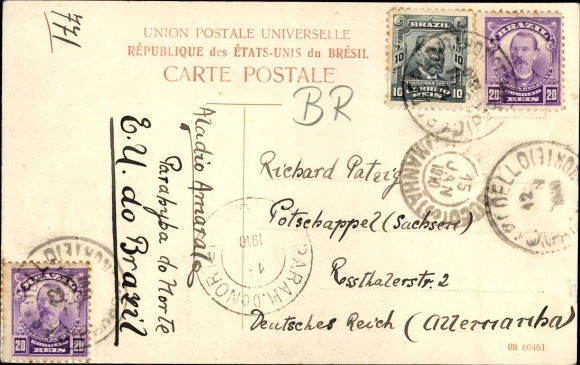 771
UNION POSTALE UNIVERSELLE
RÉPUBLIQUE des ÉTATS-UNIS du BRÉSIL
CARTE POSTALE
BR
BRAZIL
10 10
CORREIO
REIS
BRAZIL
20 20
CORREIO
REIS
Aladio Amaral
Parahyba do Norte
E. U. do Brazil
Richard Patzig
Potschappel (Sachsen)
Rossthalerstr. 2
Deutsches Reich (Allemanha)
15
JAN
1910
PARAH. DO NORTE
1910
12
BRAZIL
20 20
REIS
08. 60461